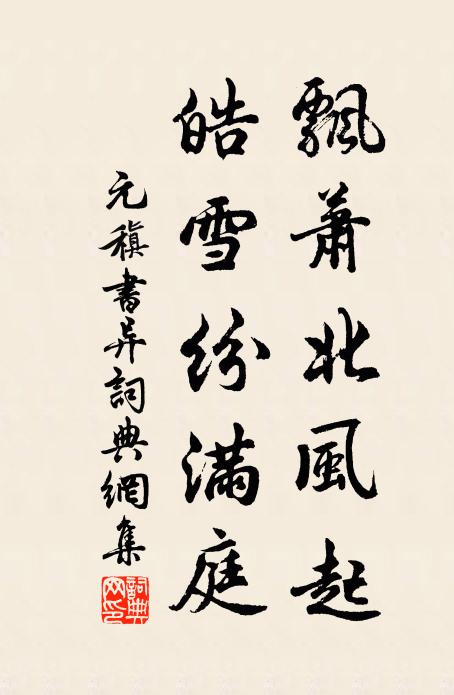 飄蕭北風起
皓雪紛滿庭
元稹書异詞典網集
詞典
网印